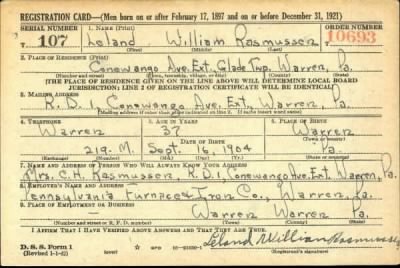 REGISTRATION CARD—(Men born on or after February 17, 1897 and on or before December 31, 1921)
SERIAL NUMBER 1. NAME (Print) ORDER NUMBER
T 107 Leland William Rasmussen 10693
(First) (Middle) (Last)
2. PLACE OF RESIDENCE (Print)
Conewango Ave. Ext. Glade Twp. Warren, Pa.
(Number and street) (Town, township, village, or city) (County) (State)
[THE PLACE OF RESIDENCE GIVEN ON THE LINE ABOVE WILL DETERMINE LOCAL BOARD
JURISDICTION; LINE 2 OF REGISTRATION CERTIFICATE WILL BE IDENTICAL]
3. MAILING ADDRESS
R. D. 1, Conewango Ave. Ext., Warren, Pa.
[Mailing address if other than place indicated on line 2. If same insert word same]
4. TELEPHONE 5. AGE IN YEARS 6. PLACE OF BIRTH
Warren 37 Warren
DATE OF BIRTH (Town or county)
219. M. Sept. 16, 1904 Pa.
(Exchange) (Number) (Mo.) (Day) (Yr.) (State or country)
7. NAME AND ADDRESS OF PERSON WHO WILL ALWAYS KNOW YOUR ADDRESS
Mrs. C. H. Rasmussen, R. D. 1, Conewango Ave. Ext. Warren, Pa.
8. EMPLOYER'S NAME AND ADDRESS
Pennsylvania Furnace & Iron Co., Warren, Pa.
9. PLACE OF EMPLOYMENT OR BUSINESS
Warren Warren Pa.
(Number and street or R. F. D. number) (Town) (County) (State)
I AFFIRM THAT I HAVE VERIFIED ABOVE ANSWERS AND THAT THEY ARE TRUE.
D. S. S. Form 1 Leland William Rasmussen
(Revised 1-1-42) (over) GPO (Registrant's signature)